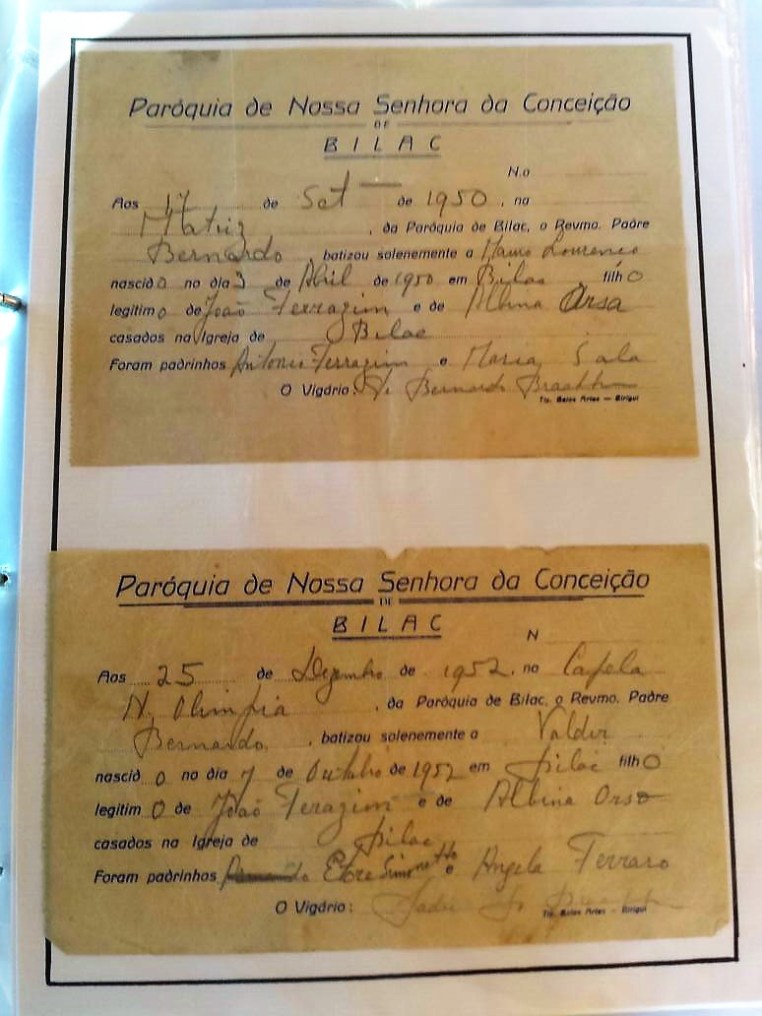 Paróquia de Nossa Senhora da Conceição
DE
BILAC
N.o
Aos 17 de Set de 1950, na
Matriz, da Paróquia de Bilac, o Revmo. Padre
Bernardo batizou solenemente a Mauro Lourenço
nascido no dia 3 de Abril de 1950 em Bilac filho
legitimo de João Ferrazim e de Albina Orsa
casados na Igreja de Bilac
Foram padrinhos Antonio Ferrazim e Maria Sala
O Vigário: Bernardo
Tip. Belas Artes — Birigui
Paróquia de Nossa Senhora da Conceição
DE
BILAC
N
Aos 25 de Dezembro de 1952, na Capela
N. Olimpia, da Paróquia de Bilac, o Revmo. Padre
Bernardo, batizou solenemente a Valdir
nascido no dia 7 de Outubro de 1952 em Bilac filho
legitimo de João Terazim e de Albina Orso
casados na Igreja de Bilac
Foram padrinhos Etore Simonetto e Angela Ferraro
O Vigário: Padre
Tip. Belas Artes — Birigui